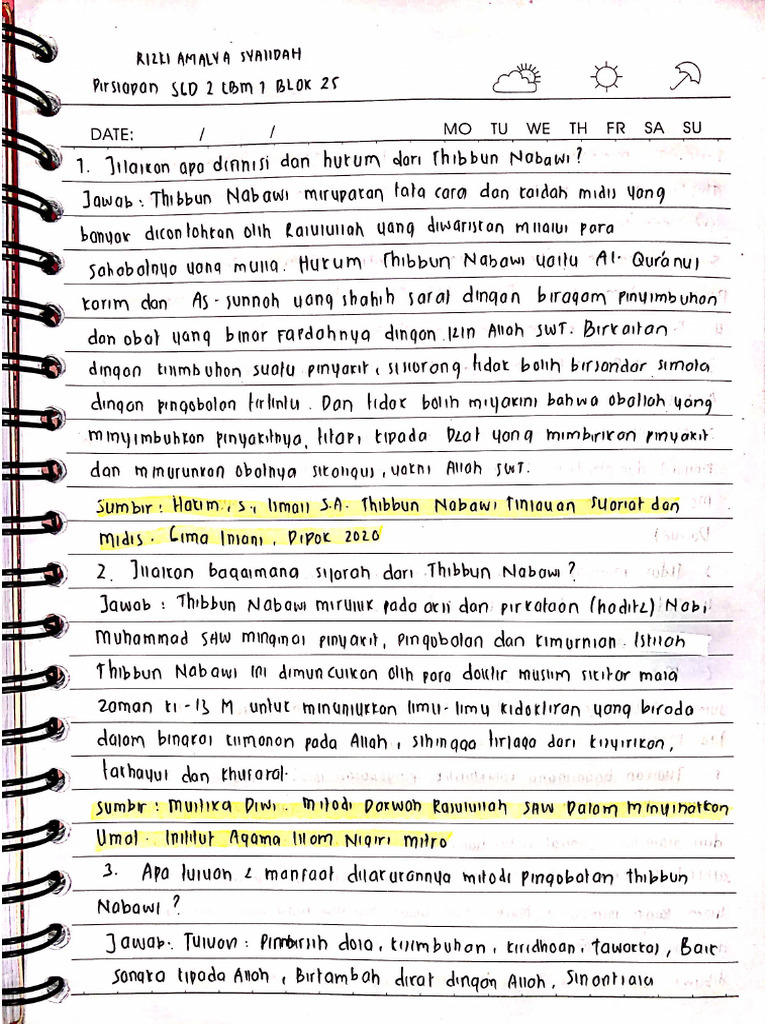 RIZKI AMALYA SYAIIDAH
Persiapan SGD 2 LBM 1 BLOK 25
DATE: / / MO TU WE TH FR SA SU
1. Jelaskan apa definisi dan hukum dari Thibbun Nabawi?
Jawab: Thibbun Nabawi merupakan tata cara dan kaidah medis yang
banyak dicontohkan oleh Rasulullah yang diwariskan melalui para
sahabatnya yang mulia. Hukum Thibbun Nabawi yaitu Al-Qur'anul
karim dan As-sunnah yang shahih sarat dengan beragam penyembuhan
dan obat yang benar faedahnya dengan izin Allah SWT. Berkaitan
dengan kesembuhan suatu penyakit, seseorang tidak boleh bersandar semata
dengan pengobatan tertentu. Dan tidak boleh meyakini bahwa obatlah yang
menyembuhkan penyakitnya, tetapi kepada Dzat yang memberikan penyakit
dan menurunkan obatnya sekaligus, yakni Allah SWT.
Sumber: Hakim, S., Ismail S.A. Thibbun Nabawi Tinjauan Syariat dan
Medis. Gema Insani, Depok 2020
2. Jelaskan bagaimana sejarah dari Thibbun Nabawi?
Jawab: Thibbun Nabawi merujuk pada aksi dan perkataan (hadits) Nabi
Muhammad SAW mengenai penyakit, pengobatan dan kemurnian. Istilah
Thibbun Nabawi ini dimunculkan oleh para dokter muslim sekitar masa
zaman ke-13 M untuk menunjukkan ilmu-ilmu kedokteran yang berada
dalam bingkai keimanan pada Allah, sehingga terjaga dari kesyirikan,
takhayul dan khurafat.
Sumber: Mustika Dewi. Metode Dakwah Rasulullah SAW Dalam Menyehatkan
Umat. Institut Agama Islam Negeri Metro
3. Apa tujuan & manfaat dilakukannya metode pengobatan Thibbun
Nabawi?
Jawab: Tujuan: Pembersih dosa, kesembuhan, keridhoan, tawakkal, Baik
sangka kepada Allah, Bertambah dekat dengan Allah, Senantiasa